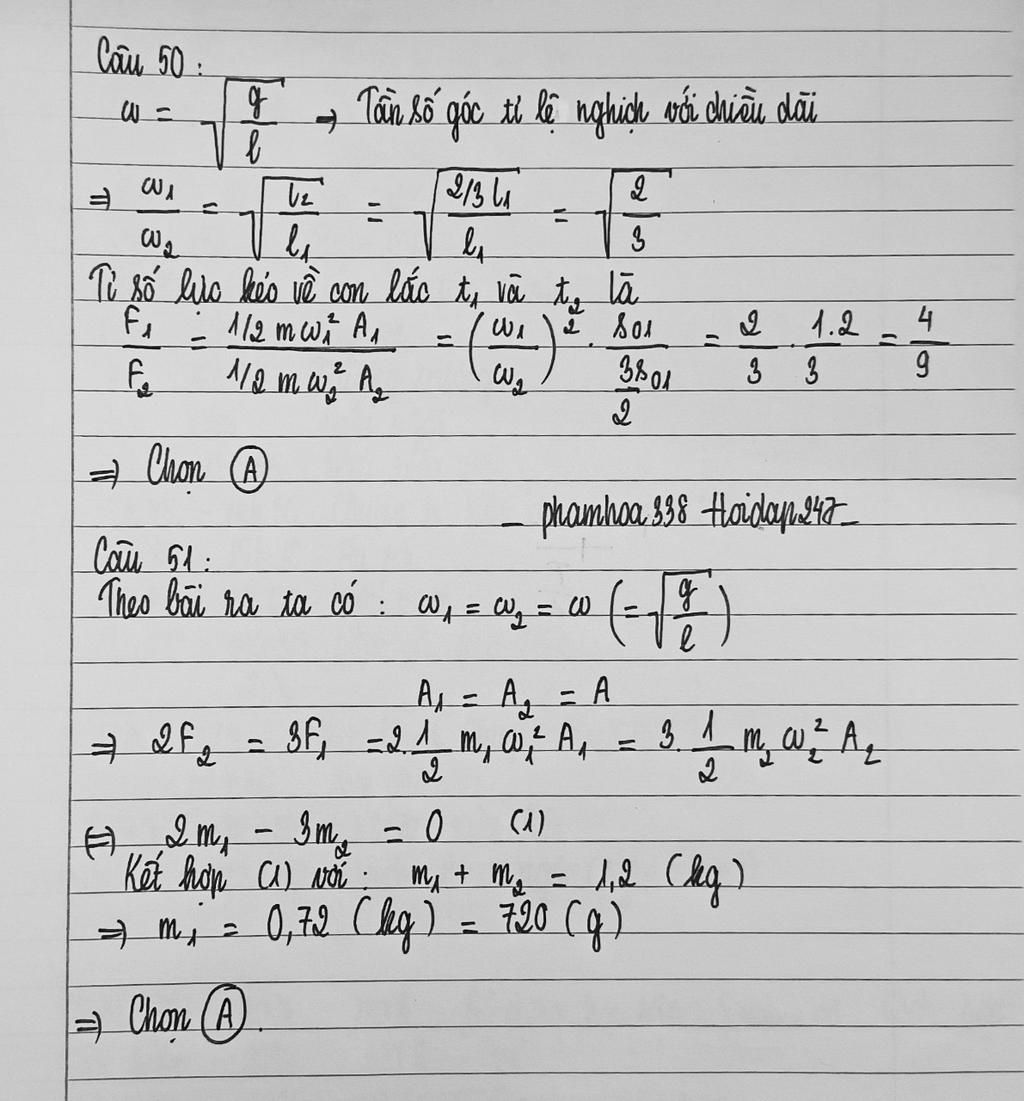 Câu 50 :
ω = √(g/l) → Tần số góc tỉ lệ nghịch với chiều dài
⇒ ω₁/ω₂ = √(l₂/l₁) = √(2/3 l₁/l₁) = √(2/3)
Tỉ số lực kéo về con lắc t₁ và t₂ là
F₁/F₂ = (1/2 m ω₁² A₁)/(1/2 m ω₂² A₂) = (ω₁/ω₂)² . s₀₁/(3s₀₁/2) = 2/3 . 1.2/3 = 4/9
⇒ Chọn Ⓐ
– phamhoa338 Hoidap247–
Câu 51 :
Theo bài ra ta có : ω₁ = ω₂ = ω (= √(g/l))
A₁ = A₂ = A
⇒ 2F₂ = 3F₁ = 2. 1/2 m₁ ω₁² A₁ = 3. 1/2 m₂ ω₂² A₂
⇔ 2m₁ – 3m₂ = 0 (1)
Kết hợp (1) với : m₁ + m₂ = 1,2 (kg)
⇒ m₁ = 0,72 (kg) = 720 (g)
⇒ Chọn Ⓐ.